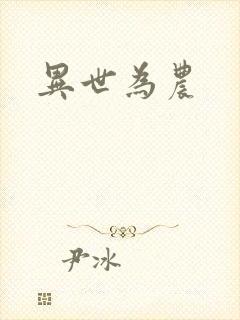 異世為農
尹冰